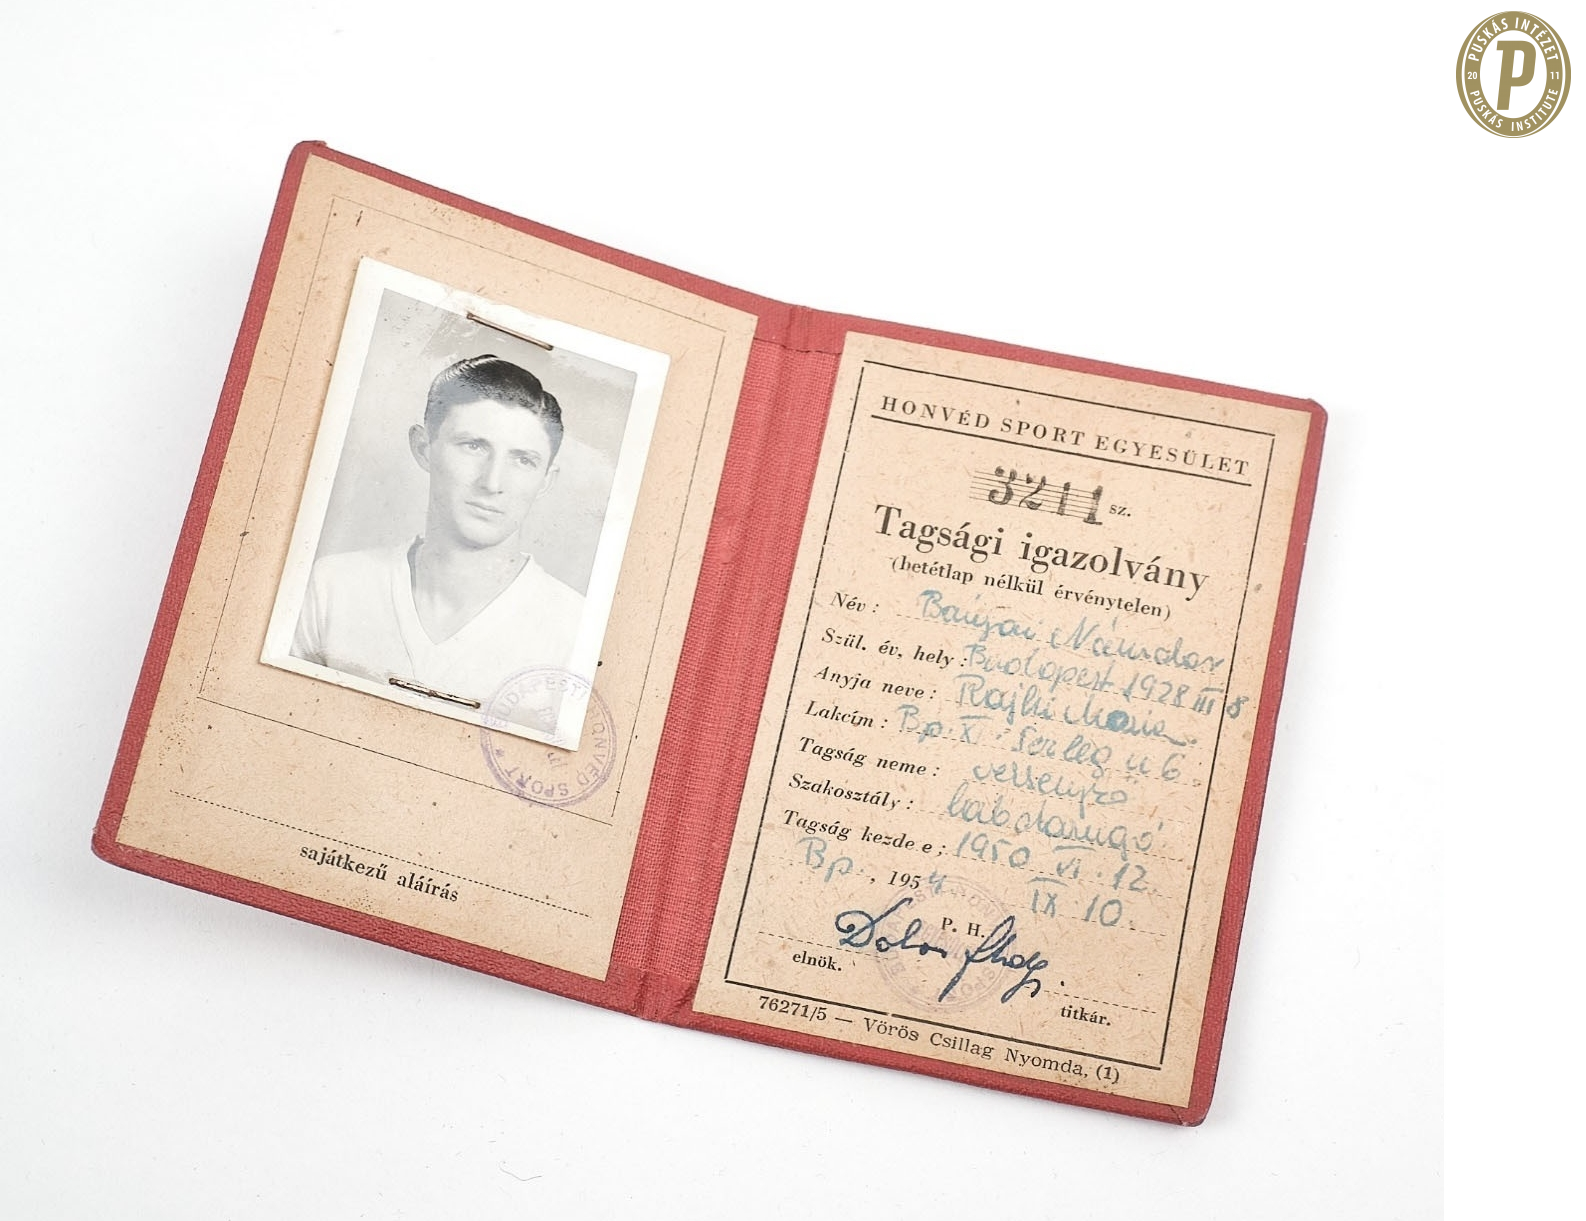 PUSKÁS INTÉZET
20 11
P
PUSKÁS INSTITUTE
BUDAPESTI HONVÉD SPORT
sajátkezű aláírás
HONVÉD SPORT EGYESÜLET
3211 sz.
Tagsági igazolvány
(betétlap nélkül érvénytelen)
Név: Bányai Nándor
Szül. év, hely: Budapest 1928 III 8
Anyja neve: Rajki Mária
Lakcím: Bp. XI. Serleg u 6.
Tagság neme: versenyző
Szakosztály: labdarugó
Tagság kezdete: 1950 VI. 12.
Bp., 1954 IX 10.
P. H.
elnök.
titkár.
76271/5 — Vörös Csillag Nyomda, (1)